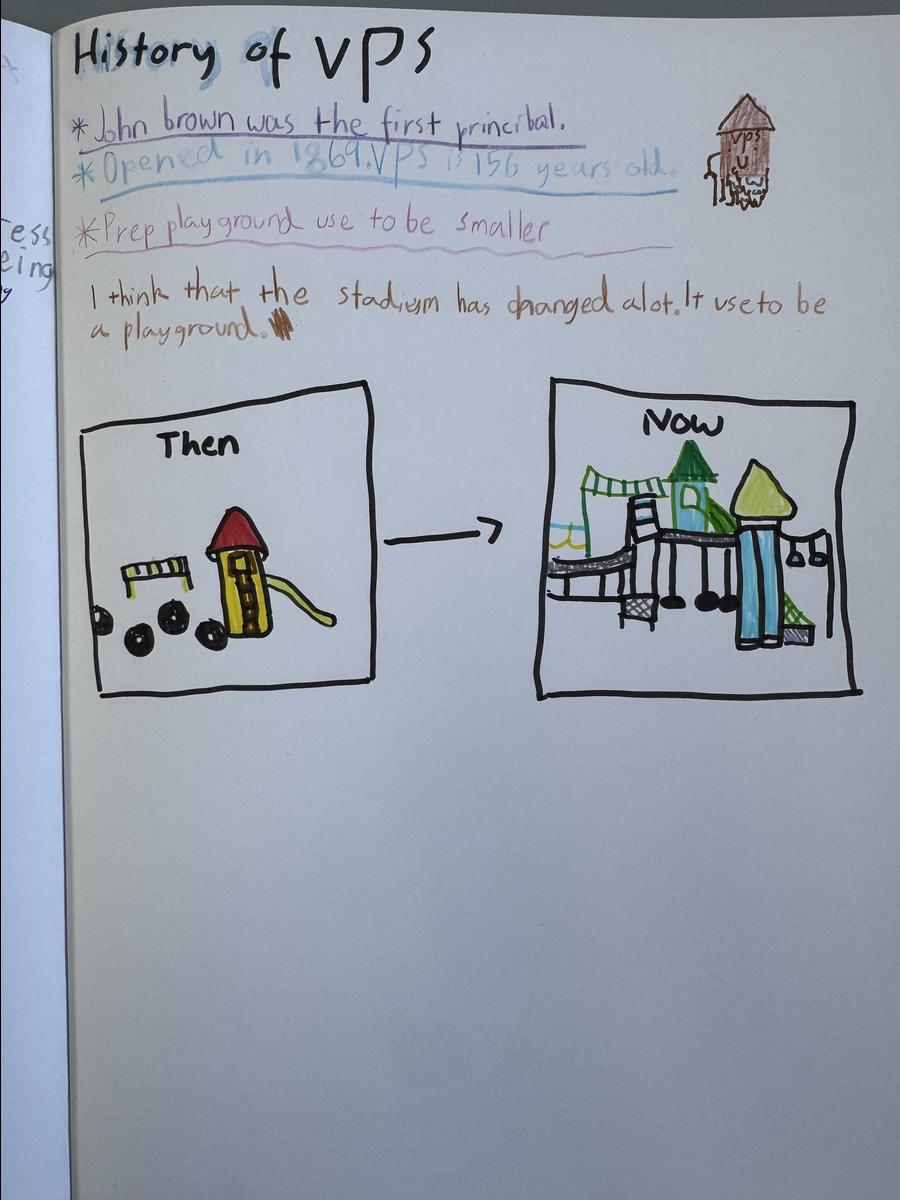 History of VPS
* John brown was the first princibal.
* Opened in 1869. VPS is 156 years old.
VPS
* Prep playground use to be smaller
I think that the stadium has changed alot. It use to be
a playground.
Then
Now
ess
eing